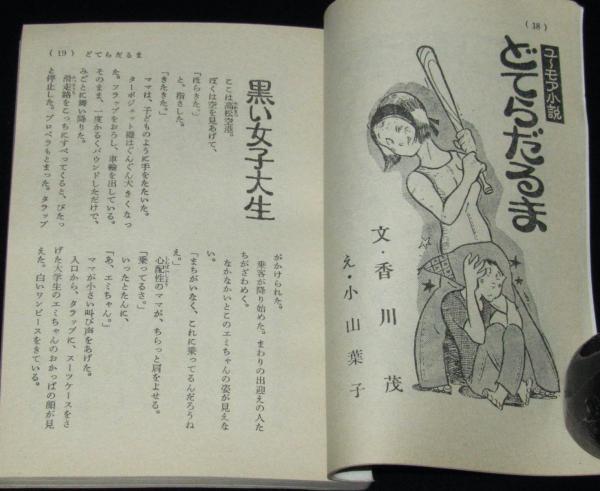 (18)
ユーモア小説
どてらだるま
文・香川　茂
え・小山葉子
(19)　どてらだるま
黒い女子大生
ここは高松空港。
ぼくは空を見あげて、
「ほらきた。」
と、指さした。
「きたきた。」
ママは、子どものように手をたたいた。
ターボジェット機はぐんぐん大きくなっ
た。フラップをおろし、車輪を出している。
そのまま、一度かるくバウンドしただけで、
みごとに舞い降りた。
滑走路をこっちにすべってくると、ぴたっ
と停止した。プロペラもとまった。タラップ
がかけられた。
乗客が降り始めた。まわりの出迎えの人た
ちがざわめく。
なかなかいとこのエミちゃんの姿が見えな
い。
「まちがいなく、これに乗ってるんだろうね
え。」
心配性のママが、ちらっと肩をよせる。
「乗ってるさ。」
いったとたんに、
「あ、エミちゃん。」
ママが小さい叫び声をあげた。
入口から、タラップに、スーツケースをさ
げた大学生のエミちゃんのおかっぱの顔が見
えた。白いワンピースをきている。